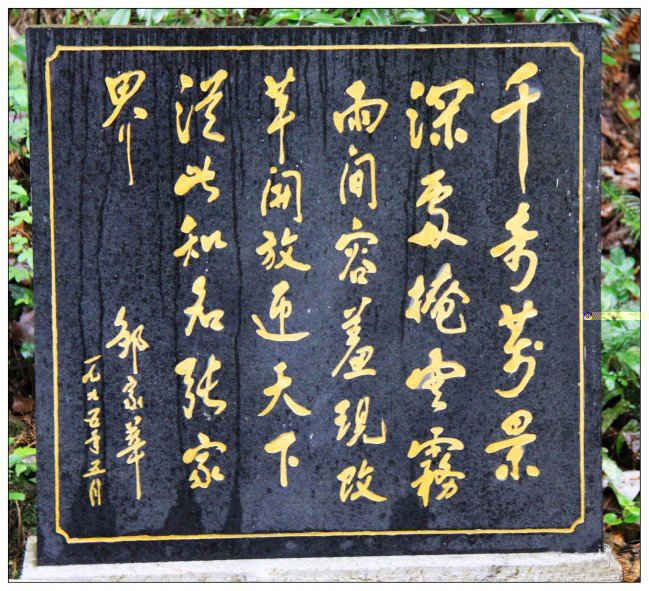 千奇萬景
深處掩雲霧
雨間容羞現改
革開放迎天下
從此知名張家
界
鄒家華
一九九五年五月